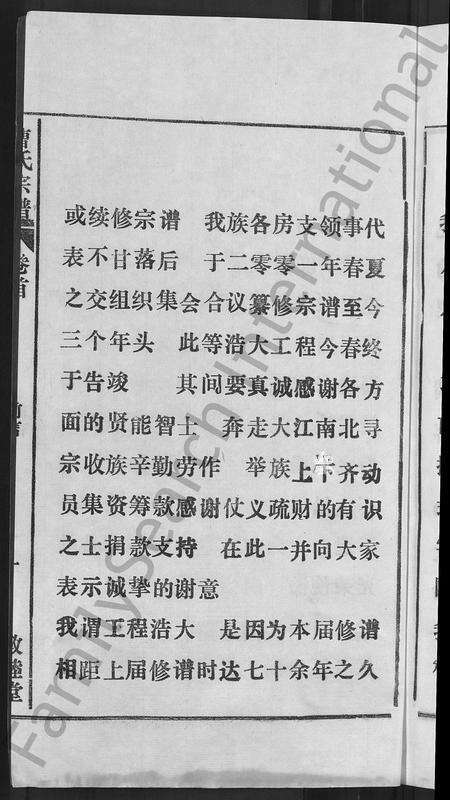 或续修宗谱　我族各房支领事代
表不甘落后　于二零零一年春夏
之交组织集会合议纂修宗谱至今
三个年头　此等浩大工程今春终
于告竣　　其间要真诚感谢各方
面的贤能智士　奔走大江南北寻
宗收族辛勤劳作　举族上下齐动
员集资筹款感谢仗义疏财的有识
之士捐款支持　在此一并向大家
表示诚挚的谢意
我谓工程浩大　是因为本届修谱
相距上届修谱时达七十余年之久
曹氏宗谱
卷首
前言
一
敦睦堂
FamilySearch International